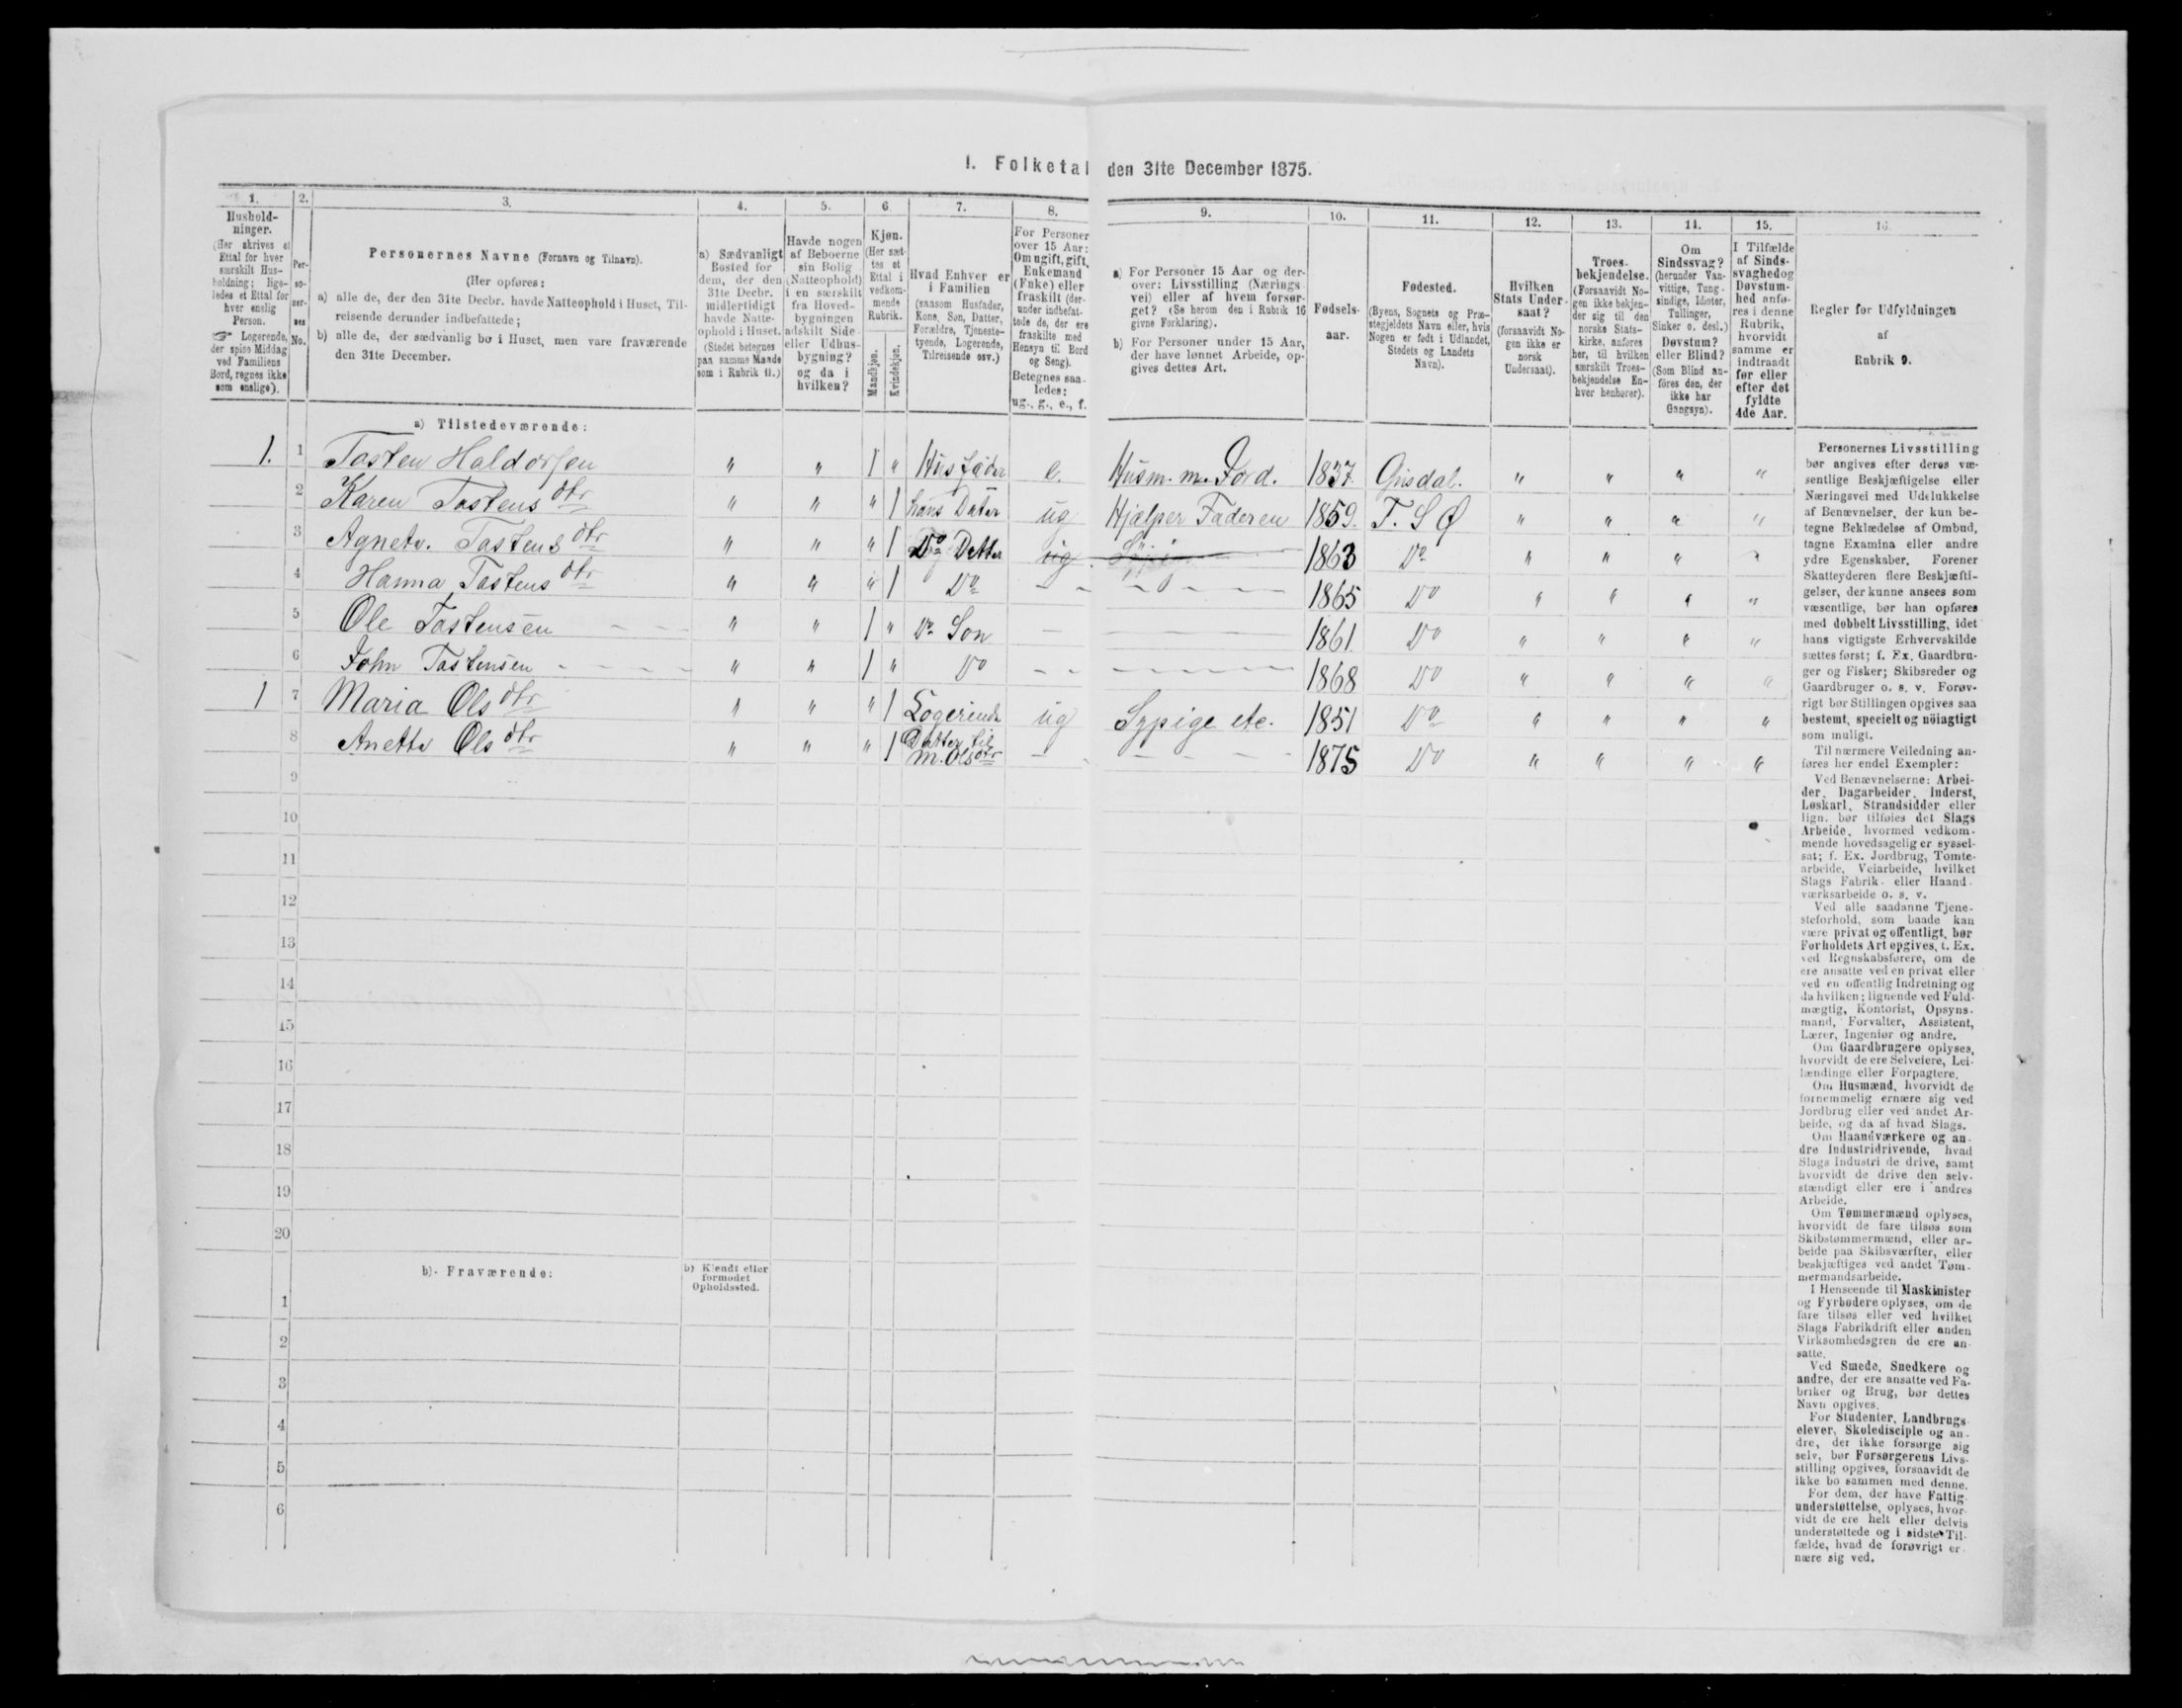 I. Folketal den 31te December 1875.
1. 2. 3. 4. 5. 6. 7. 8. 9. 10. 11. 12. 13. 14. 15. 16.
Hushold-
ninger.
(Her skrives et
Ettal for hver
særskilt Hus-
holdning; lige-
ledes et Ettal for
hver enslig
Person.
☞ Logerende,
der spise Middag
ved Familiens
Bord, regnes ikke
som enslige).
Per-
so-
ner-
nes
No.
Personernes Navne (Fornavn og Tilnavn).
(Her opføres:
a) alle de, der den 31te Decbr. havde Natteophold i Huset, Til-
reisende derunder indbefattede;
b) alle de, der sædvanlig bo i Huset, men vare fraværende
den 31te December.
a) Sædvanligt
Bosted for
dem, der den
31te Decbr.
midlertidigt
havde Natte-
ophold i Huset.
(Stedet betegnes
paa samme Maade
som i Rubrik 11.)
Havde nogen
af Beboerne
sin Bolig
(Natteophold)
i en særskilt
fra Hoved-
bygningen
adskilt Side-
eller Udhus-
bygning?
og da i
hvilken?
Kjøn.
(Her sæt-
tes et
Ettal i
vedkom-
mende
Rubrik.
Mandkjøn.
Kvindekjøn.
Hvad Enhver er
i Familien
(saasom Husfader,
Kone, Søn, Datter,
Forældre, Tjeneste-
tyende, Logerende,
Tilreisende osv.)
For Personer
over 15 Aar:
Om ugift, gift,
Enkemand
(Enke) eller
fraskilt (der-
under indbefat-
tede de, der ere
fraskilte med
Hensyn til Bord
og Seng).
Betegnes saa-
ledes:
ug., g., e., f.
a) For Personer 15 Aar og der-
over: Livsstilling (Nærings-
vei) eller af hvem forsør-
get? (Se herom den i Rubrik 16
givne Forklaring).
b) For Personer under 15 Aar,
der have lønnet Arbeide, op-
gives dettes Art.
Fødsels-
aar.
Fødested.
(Byens, Sognets og Præ-
stegjeldets Navn eller, hvis
Nogen er født i Udlandet,
Stedets og Landets
Navn).
Hvilken
Stats Under-
saat?
(forsaavidt No-
gen ikke er
norsk
Undersaat).
Troes-
bekjendelse.
(Forsaavidt No-
gen ikke bekjen-
der sig til den
norske Stats-
kirke, anføres
her, til hvilken
særskilt Troes-
bekjendelse En-
hver henhører).
Om
Sindssvag?
(herunder Van-
vittige, Tung-
sindige, Idioter,
Tullinger,
Sinker o. desl.)
Døvstum?
eller Blind?
(Som Blind an-
føres den, der
ikke har
Gangsyn).
I Tilfælde
af Sinds-
svaghed og
Døvstum-
hed anfø-
res i denne
Rubrik,
hvorvidt
samme er
indtraadt
før eller
efter det
fyldte
4de Aar.
Regler for Udfyldningen
af
Rubrik 9.
a) Tilstedeværende:
1. 1 Tasten Haldorsen " " 1 " Husfader e. Husm. m. Jord. 1837. Gjisdal. " " " "
2 Karen Tastensdtr " " " 1 hans Dater ug Hjælper Faderen 1859. T. S Ø " " " "
3 Agnete. Tastensdtr " " " 1 Do Datter ug 1863 Do " " " "
4 Hanna Tastensdtr " " " 1 Do - - - 1865 Do " " " "
5 Ole Tastensen " " 1 " Do Son - 1861 Do " " " "
6 John Tastensen " " 1 " Do - - - 1868 Do " " " "
1 7 Maria Olsdtr " " " 1 Logerende ug Sypige etc. 1851 Do " " " "
8 Anette Olsdtr " " " 1 Datter til M. Olsdtr - - - 1875 Do " " " "
9
10
11
12
13
14
15
16
17
18
19
20
b) Fraværende:
b) Kjendt eller
formodet
Opholdssted.
1
2
3
4
5
6
Personernes Livsstilling
bør angives efter deres væ-
sentlige Beskjæftigelse eller
Næringsvei med Udelukkelse
af Benævnelser, der kun be-
tegne Beklædelse af Ombud,
tagne Examina eller andre
ydre Egenskaber. Forener
Skatteyderen flere Beskjæfti-
gelser, der kunne ansees som
væsentlige, bør han opføres
med dobbelt Livsstilling, idet
hans vigtigste Erhvervskilde
sættes først; f. Ex. Gaardbru-
ger og Fisker; Skibsreder og
Gaardbruger o. s. v. Forøv-
rigt bør Stillingen opgives saa
bestemt, specielt og nöiagtigt
som muligt.
Til nærmere Veiledning an-
føres her endel Exempler:
Ved Benævnelserne: Arbei-
der, Dagarbeider, Inderst,
Løskarl, Strandsidder eller
lign. bør tilføies det Slags
Arbeide, hvormed vedkom-
mende hovedsagelig er syssel-
sat; f. Ex. Jordbrug, Tomte-
arbeide, Veiarbeide, hvilket
Slags Fabrik- eller Haand-
værksarbeide o. s. v.
Ved alle saadanne Tjene-
steforhold, som baade kan
være privat og offentligt, bør
Forholdets Art opgives, t. Ex.
ved Regnskabsførere, om de
ere ansatte ved en privat eller
ved en offentlig Indretning og
da hvilken; lignende ved Fuld-
mægtig, Kontorist, Opsyns-
mand, Forvalter, Assistent,
Lærer, Ingeniør og andre.
Om Gaardbrugere oplyses,
hvorvidt de ere Selveiere, Lei-
lændinge eller Forpagtere.
Om Husmænd, hvorvidt de
fornemmelig ernære sig ved
Jordbrug eller ved andet Ar-
beide, og da af hvad Slags.
Om Haandværkere og an-
dre Industridrivende, hvad
Slags Industri de drive, samt
hvorvidt de drive den selv-
stændigt eller ere i andres
Arbeide.
Om Tømmermænd oplyses,
hvorvidt de fare tilsøs som
Skibstømmermænd, eller ar-
beide paa Skibsværfter, eller
beskjæftiges ved andet Tøm-
mermandsarbeide.
I Henseende til Maskinister
og Fyrbødere oplyses, om de
fare tilsøs eller ved hvilket
Slags Fabrikdrift eller anden
Virksomhedsgren de ere an-
satte.
Ved Smede, Snedkere og
andre, der ere ansatte ved Fa-
briker og Brug, bør dettes
Navn opgives.
For Studenter, Landbrugs-
elever, Skoledisciple og an-
dre, der ikke forsørge sig
selv, bør Forsørgerens Livs-
stilling opgives, forsaavidt de
ikke bo sammen med denne.
For dem, der have Fattig-
understøttelse, oplyses, hvor-
vidt de ere helt eller delvis
understøttede og i sidste Til-
fælde, hvad de forøvrigt er-
nære sig ved.